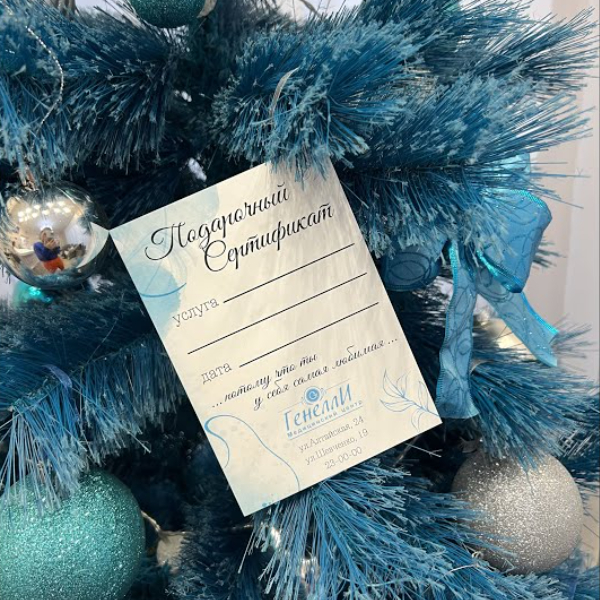 Подарочный
Сертификат
услуга
дата
...потому что ты
у себя самая любимая ...
ГенеллИ
Медицинский центр
ул.Алтайская, 24
ул.Шевченко, 19
23-00-00